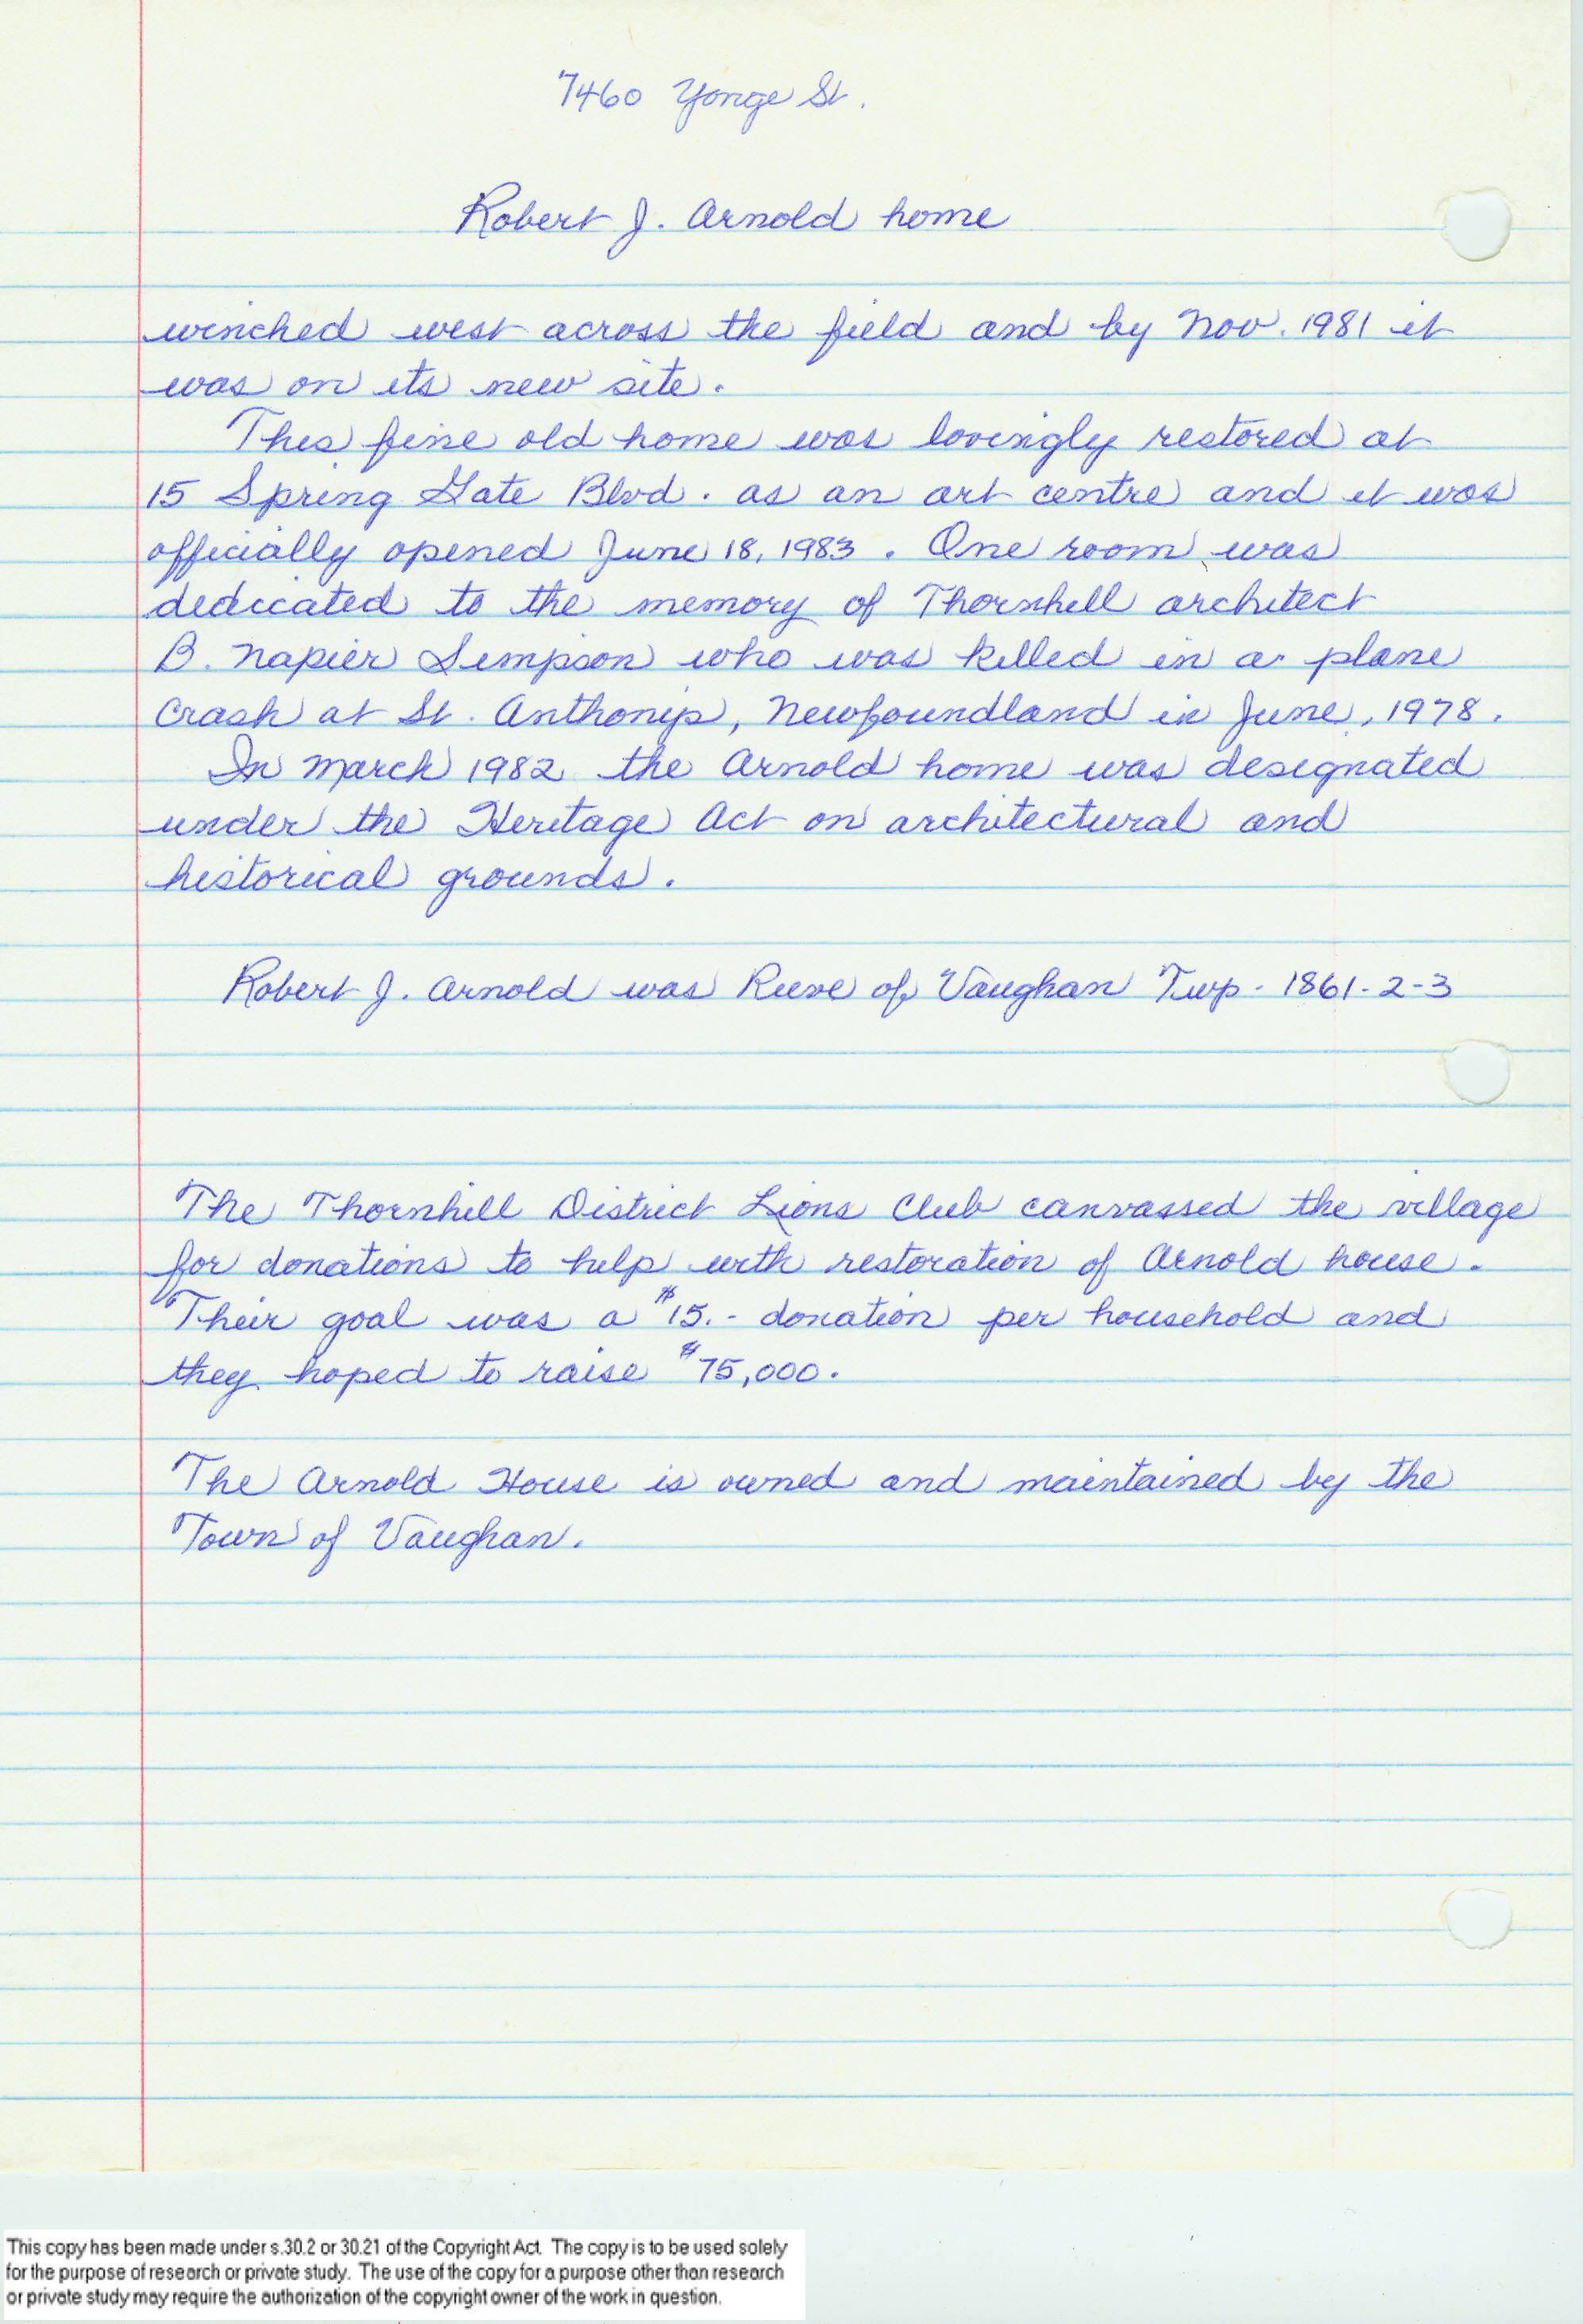 7460 Yonge St.
Robert J. Arnold home
winched west across the field and by Nov. 1981 it
was on its new site.
This fine old home was lovingly restored at
15 Spring Gate Blvd. as an art centre and it was
officially opened June 18, 1983. One room was
dedicated to the memory of Thornhill architect
B. Napier Simpson who was killed in a plane
crash at St. Anthony, Newfoundland in June, 1978.
In March 1982 the Arnold home was designated
under the Heritage Act on architectural and
historical grounds.
Robert J. Arnold was Reeve of Vaughan Twp - 1861-2-3
The Thornhill District Lions Club canvassed the village
for donations to help with restoration of Arnold house.
Their goal was a $15.- donation per household and
they hoped to raise $75,000.
The Arnold House is owned and maintained by the
Town of Vaughan.
This copy has been made under s.30.2 or 30.21 of the Copyright Act. The copy is to be used solely
for the purpose of research or private study. The use of the copy for a purpose other than research
or private study may require the authorization of the copyright owner of the work in question.